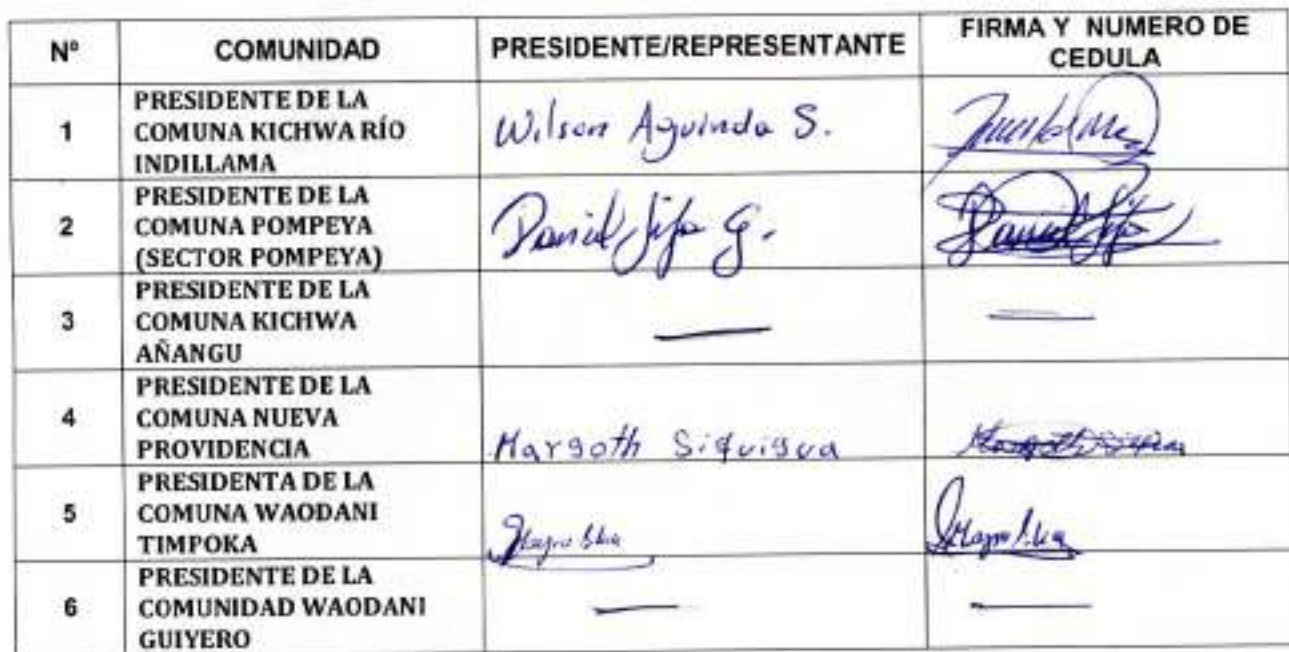 Nº COMUNIDAD PRESIDENTE/REPRESENTANTE FIRMA Y NUMERO DE
CEDULA
1 PRESIDENTE DE LA
COMUNA KICHWA RÍO
INDILLAMA
Wilson Aguinda S.
2 PRESIDENTE DE LA
COMUNA POMPEYA
(SECTOR POMPEYA)
David Sifa G.
3 PRESIDENTE DE LA
COMUNA KICHWA
AÑANGU
4 PRESIDENTE DE LA
COMUNA NUEVA
PROVIDENCIA
Margoth Siquigua
5 PRESIDENTA DE LA
COMUNA WAODANI
TIMPOKA
6 PRESIDENTE DE LA
COMUNIDAD WAODANI
GUIYERO